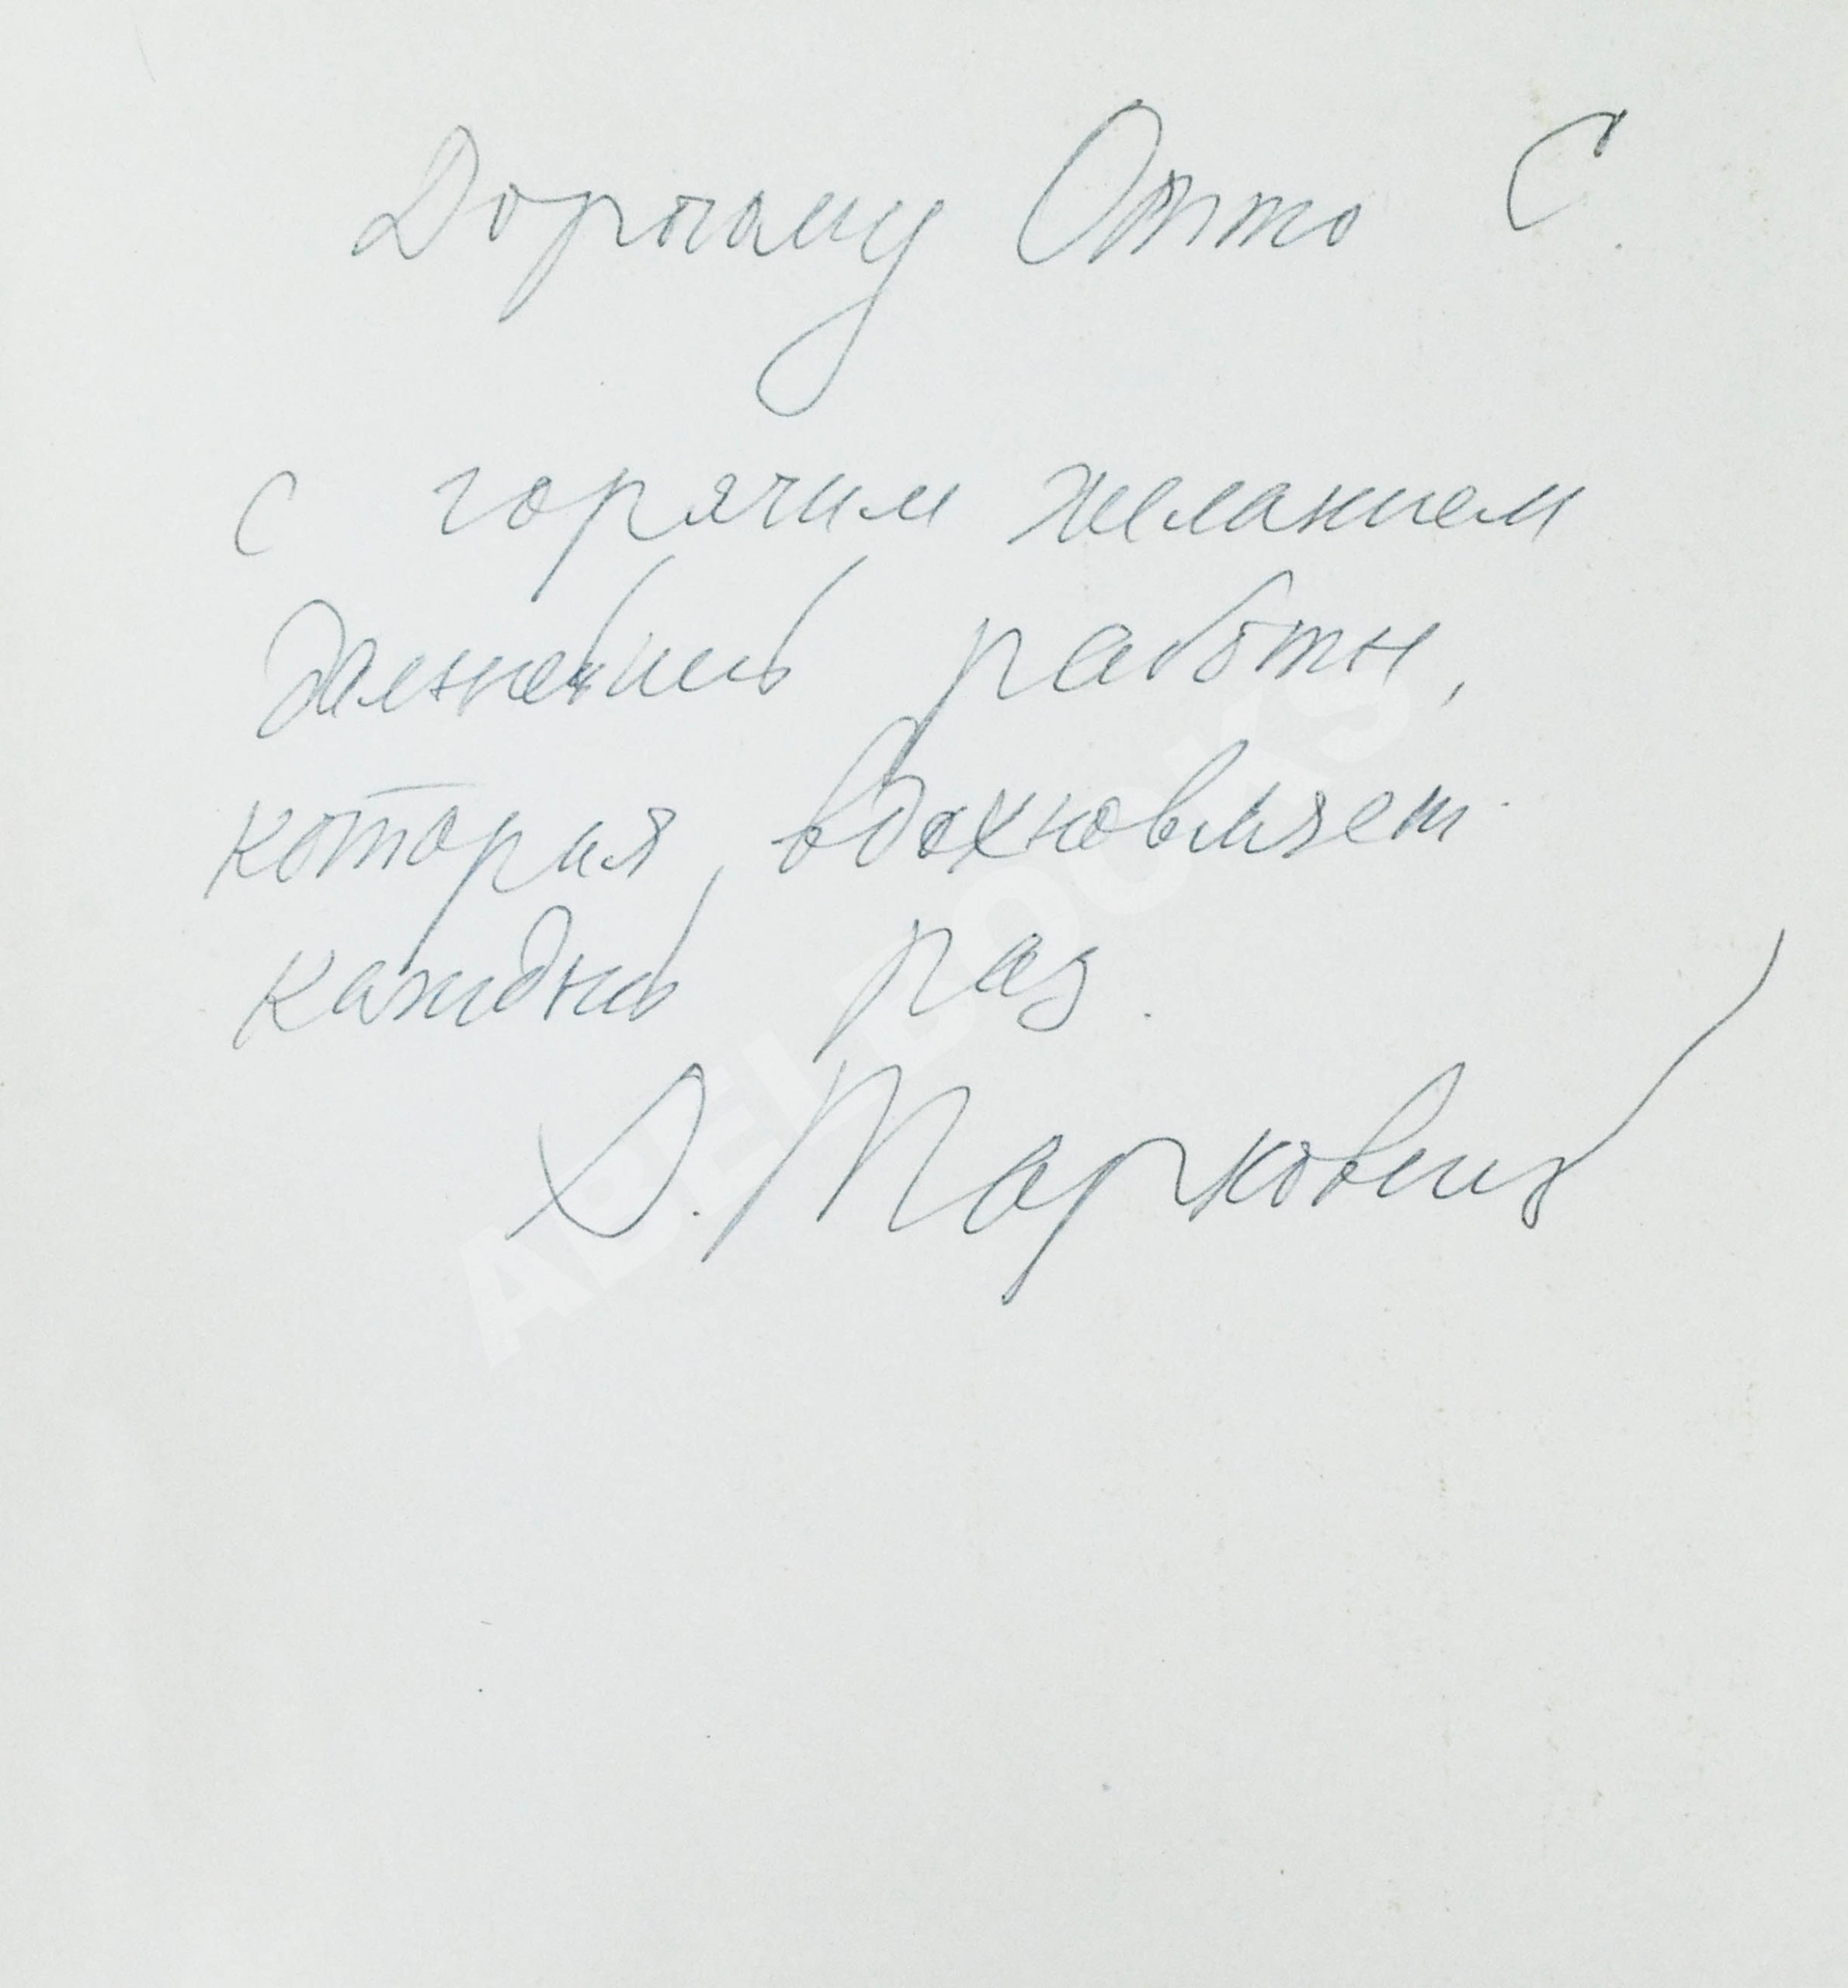 Дорогому Отто С.
с горячим желанием
дальнейшей работы,
которая вдохновляет
каждый раз.
Д. Маркович
ABELBOOKS